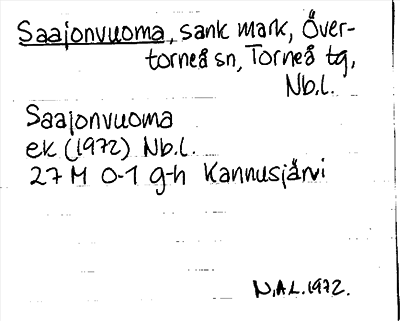 Saajonvuoma, sank mark, Över-
torneå sn, Torneå tg,
Nb.l.
Saajonvuoma
ek (1972) Nb.l.
27 M 0-1 g-h Kannusjärvi
N.A.L. 1972.